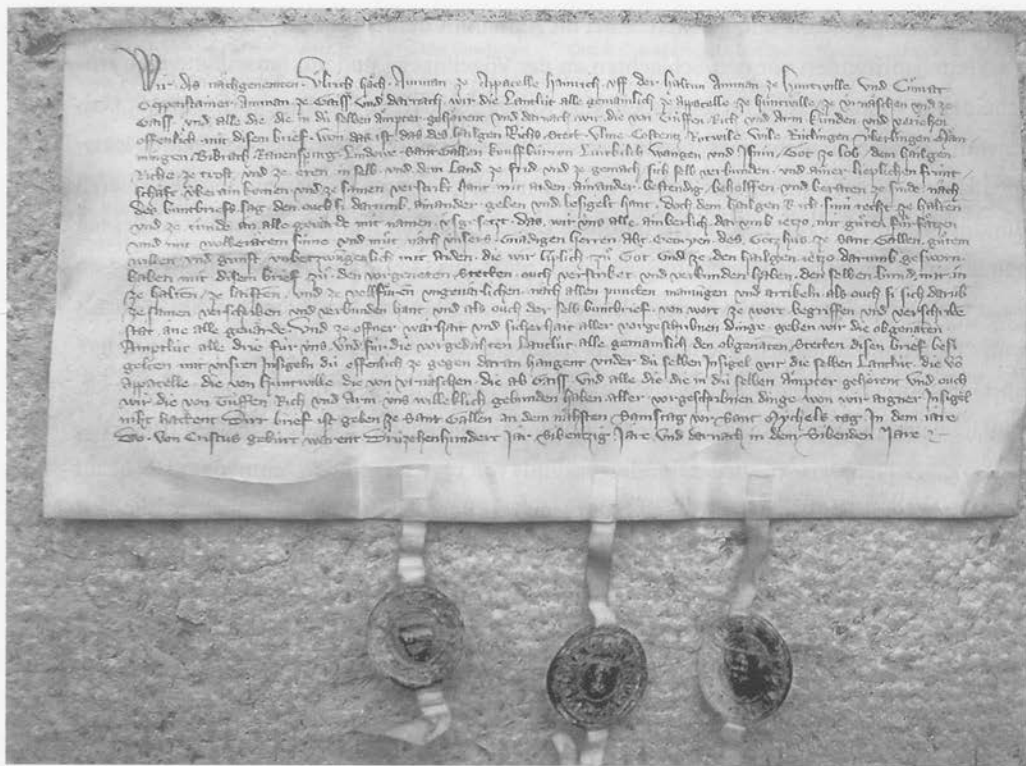 Wir die nachgenemten Ůlrich Håch Amman ze Appacelle Hainrich uff der Haltun Amman ze Huntwille und Cůnrat
Geppenstainer Amman ze Gaiss und darnach wir die Lantlút alle gemainlich ze Appacelle ze Huntwille ze Urnåschen und ze
Gaiss und alle die die in dú selben åmpter gehörent und darnach wir die von Tüffen Rich und Arm kúnden und veriehen
offenlich mit disem brief won das ist das des hailgen Richs Stett Ulme Costentz Rotwile Wile Rútlingen úberlingen Mem
mingen Bibrach Ravenspurg Lindowe Sant Gallen Kouffbúrron Lútkilch Wangen und Isnin Got ze lob dem hailgen
Riche ze trost und ze eren in selb und dem Land ze frid und ze gemach sich selb verbunden und ainer lieplichen frúnt
schaft úberain komen und ze samen verstrikt hant mit aiden ainander bestendig beholffen und beraten ze sinde nach
des buntbriefs sag den ouch si darumb ainander geben und besigelt hant doch dem hailgen Rich sinú recht ze halten
und ze tůnde an alle gevårde mit namen usgesetzt das wir uns alle ainberlich dar umb ietzo mit gůten fúrsåtzen
und mit wolberaten sinne und můt nach únsers Gnådigen herren Abt Georyen des Gotzhus ze Sant Gallen gůtem
willen und gunst unbetzwungenlich mit aiden die wir liplich zů Got und ze den hailgen ietzo darumb gesworn
haben mit disem brief zů den vorgeneten Stetten ouch verstriket und verbunden haben den selben bund mit in
ze halten ze laisten und ze vollfůren ungevarlichen nach allen puncten mainungen und artikeln als ouch si sich darúb
ze samen verschriben und verbunden hant und als ouch der selb buntbrief von wort ze wort begriffen und verschribe
stat ane alle gevårde Und ze offner warhait und sicherhait aller vorgeschribnen dinge geben wir die obgenaten
Amptlút alle drie fúr uns und fúr die vorgedåhten Lantlút alle gemainlich den obgenaten Stetten disen brief besi
gelten mit únsren Insigeln dú offenlich ze gegen daran hangent Under dú selben Insigel wir die selben Lantlút die vō
Appacelle die von Huntwille die von Urnåschen die ab Gaiss und alle die die in dú selben åmpter gehörent und ouch
wir die von Túffen Rich und Arm uns willeklich gebunden haben aller vorgeschribnen dinge won wir aigner Insigel
niht hattent Dirr brief ist geben ze Sant Gallen an dem nåhsten Samstag vor Sant Mychels tag In dem iare
Do von Cristus gebúrt warent Drúzehenhundert jar Sibentzig Jare und darnach in dem Sibenden Jare